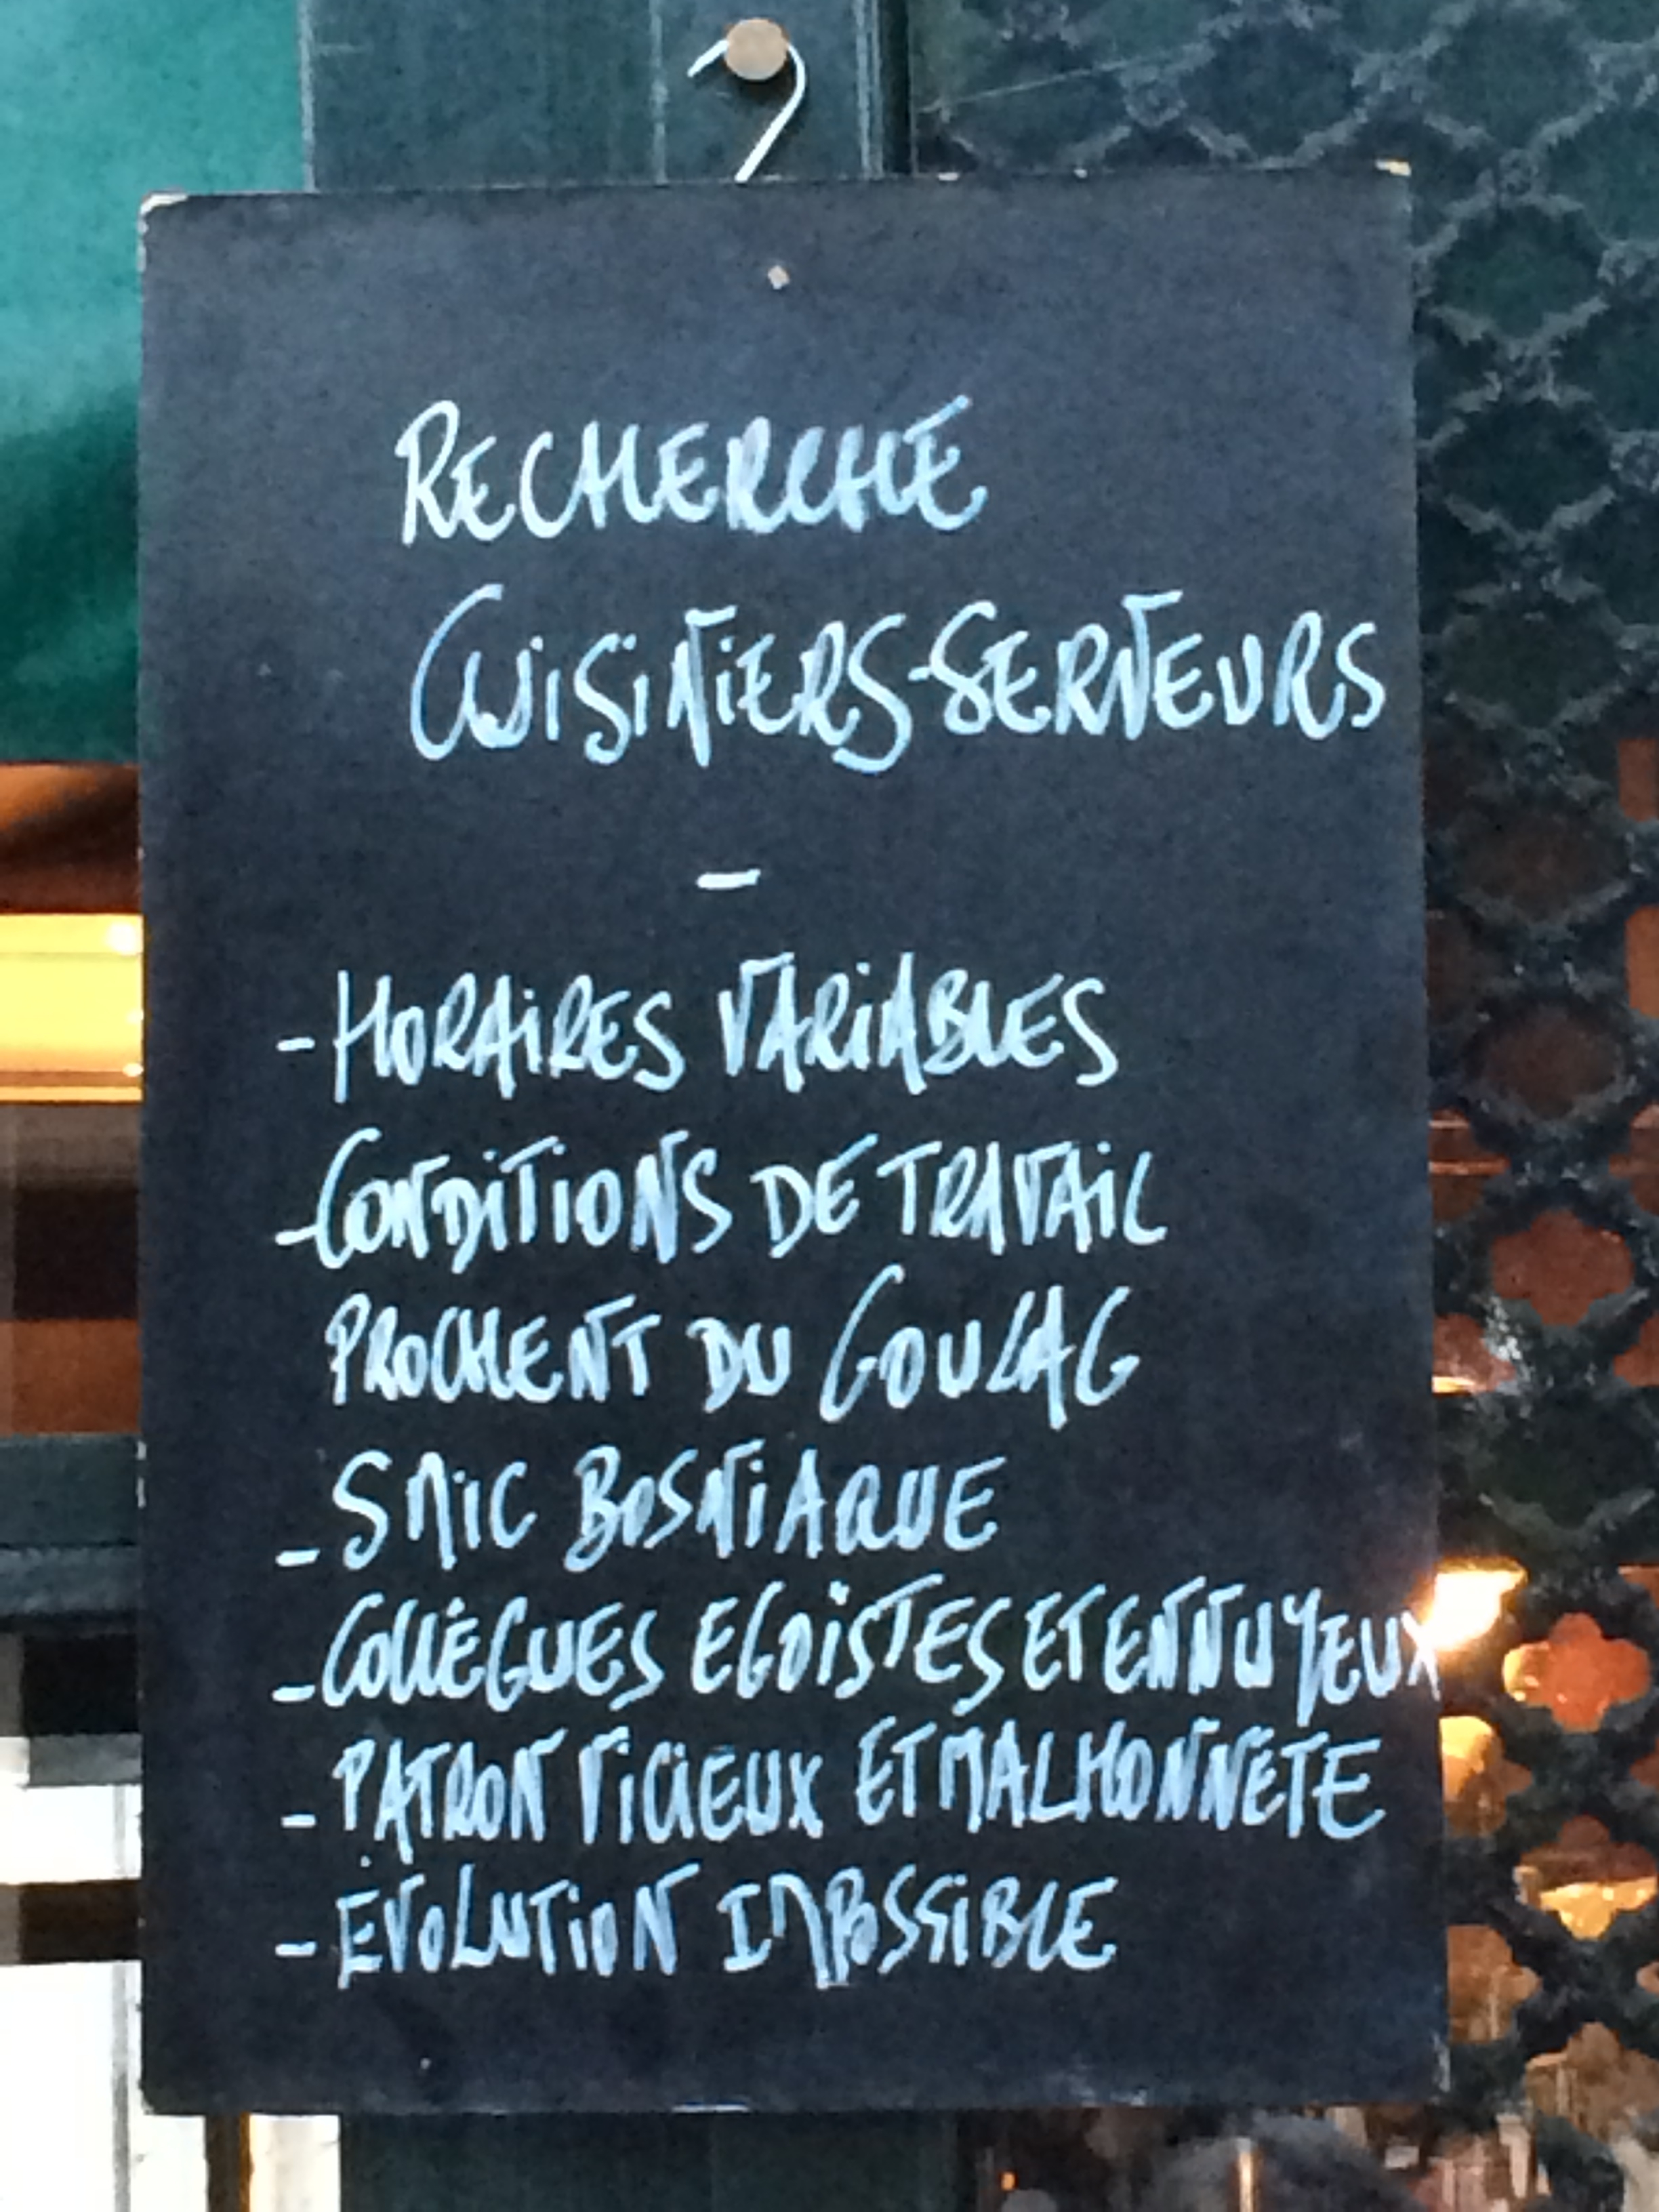 RECHERCHE
CUISINIERS-SERVEURS
-
- HORAIRES VARIABLES
- CONDITIONS DE TRAVAIL
PROCHENT DU GOULAG
- SMIC BOSNIAQUE
- COLLÈGUES EGOISTES ET ENNUYEUX
- PATRON VICIEUX ET MALHONNETE
- ÉVOLUTION IMPOSSIBLE